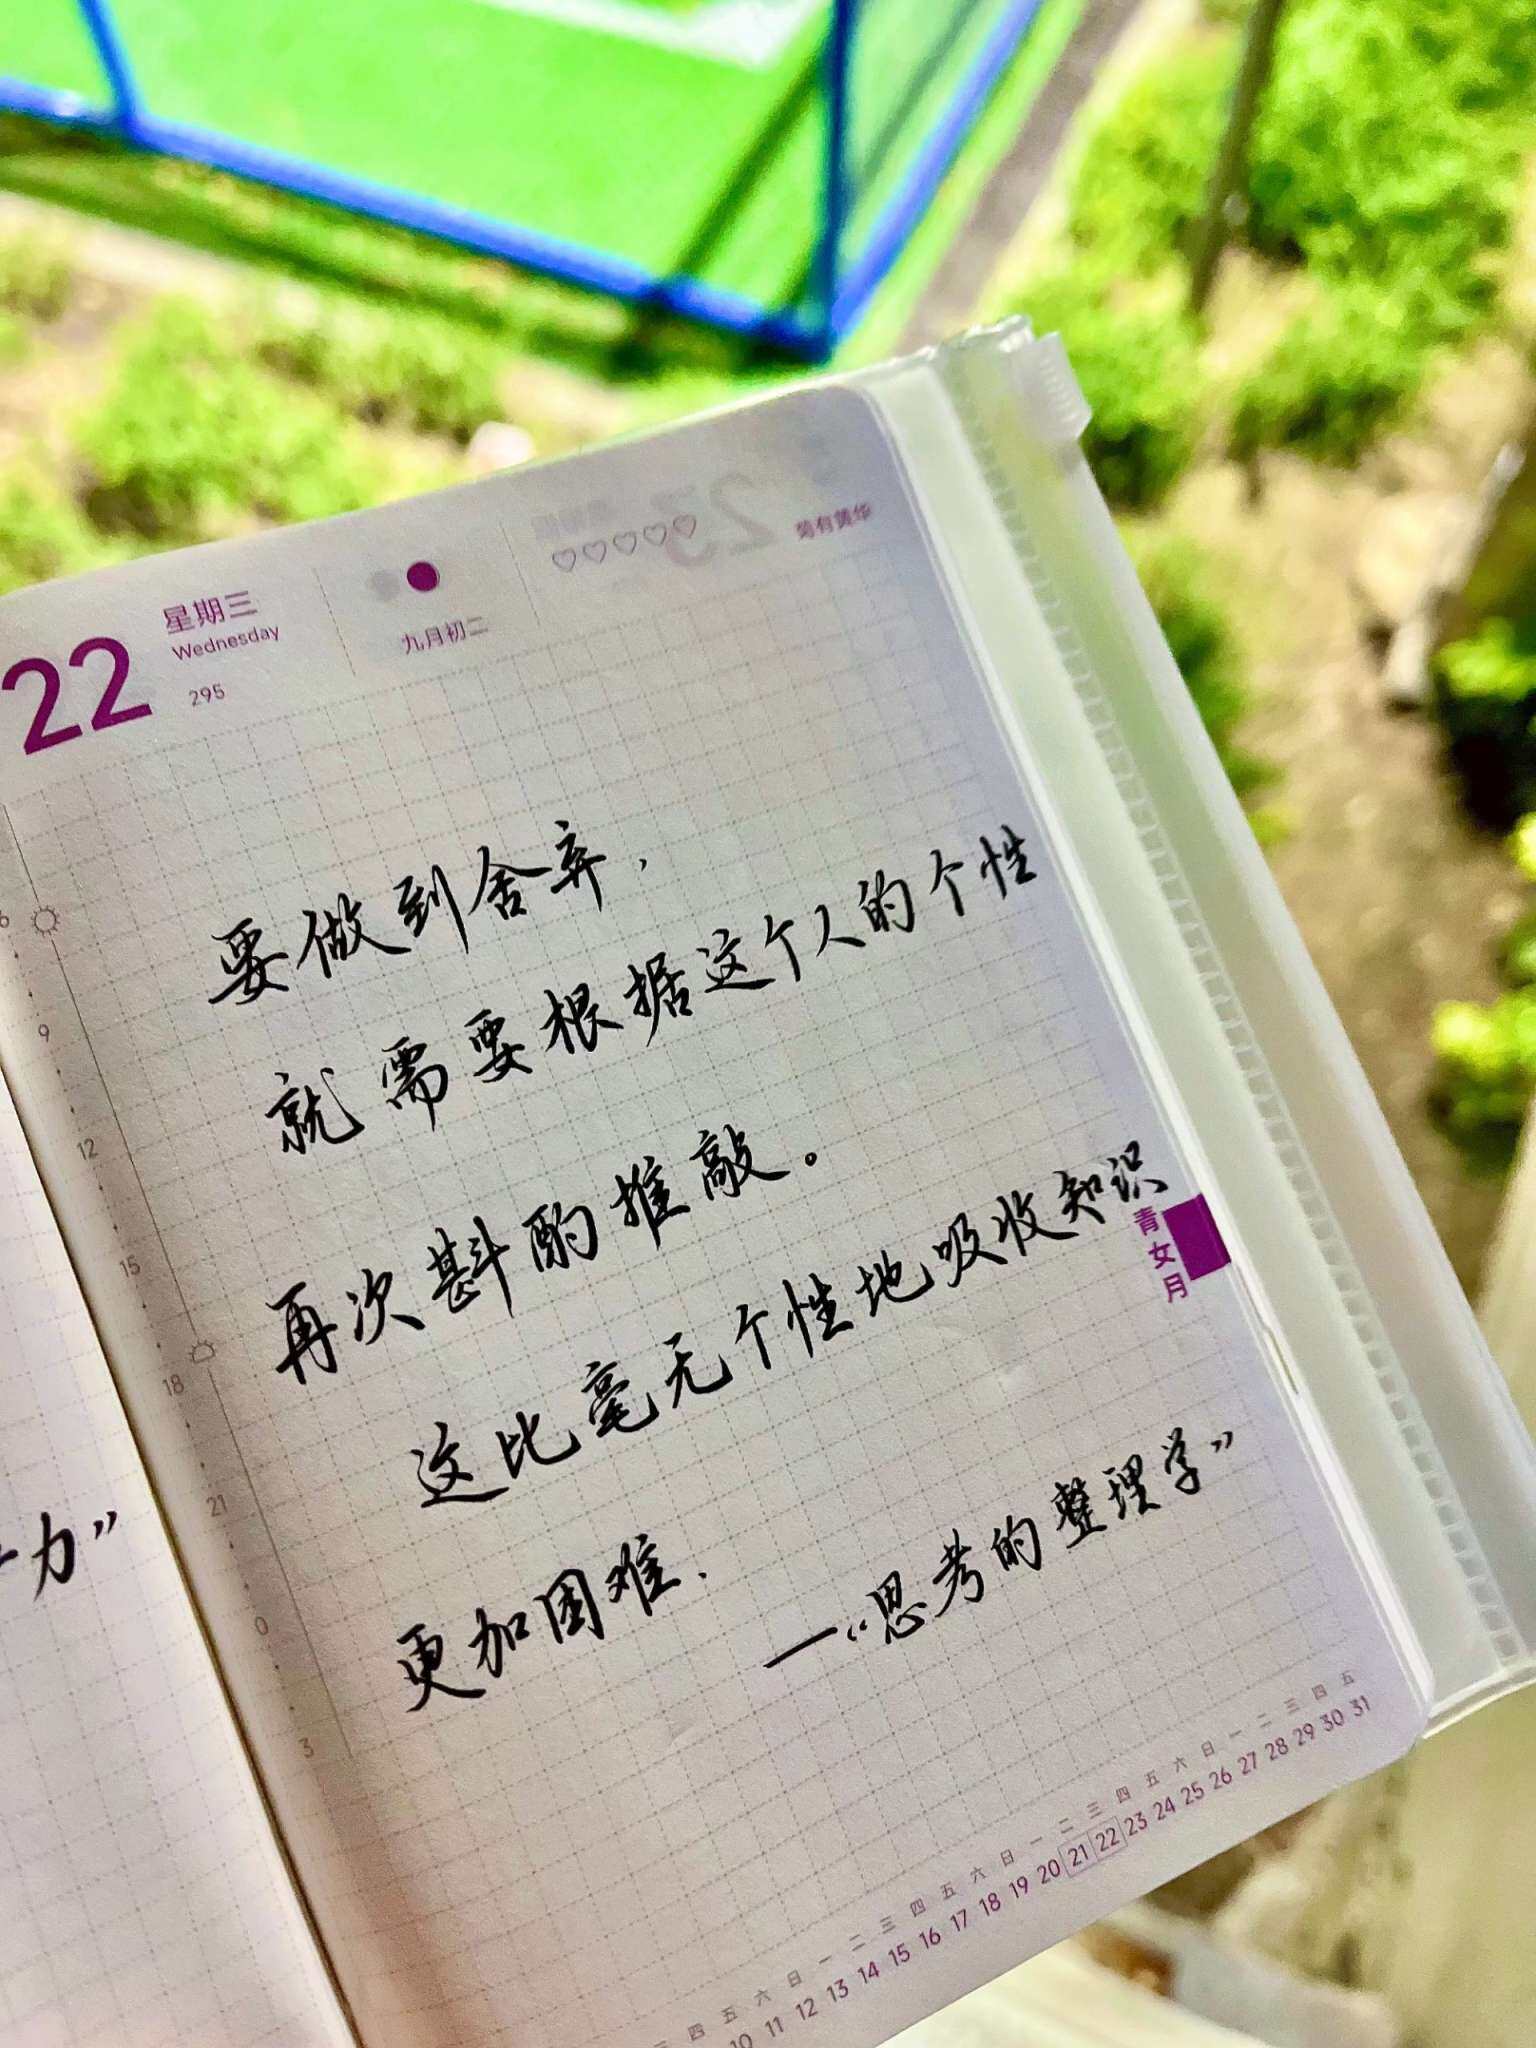 22
星期三
Wednesday
295
九月初二
♡♡♡♡♡
菊有黄华
要做到舍弃，
就需要根据这个人的个性
再次斟酌推敲。
这比毫无个性地吸收知识
更加困难.
—“思考的整理学”
青女月
力”
6
9
12
15
18
21
0
3
三 四 五 六 日 一 二 三 四 五 六 日 一 二 三 四 五 六 日 一 二 三 四 五
10 11 12 13 14 15 16 17 18 19 20 21 22 23 24 25 26 27 28 29 30 31